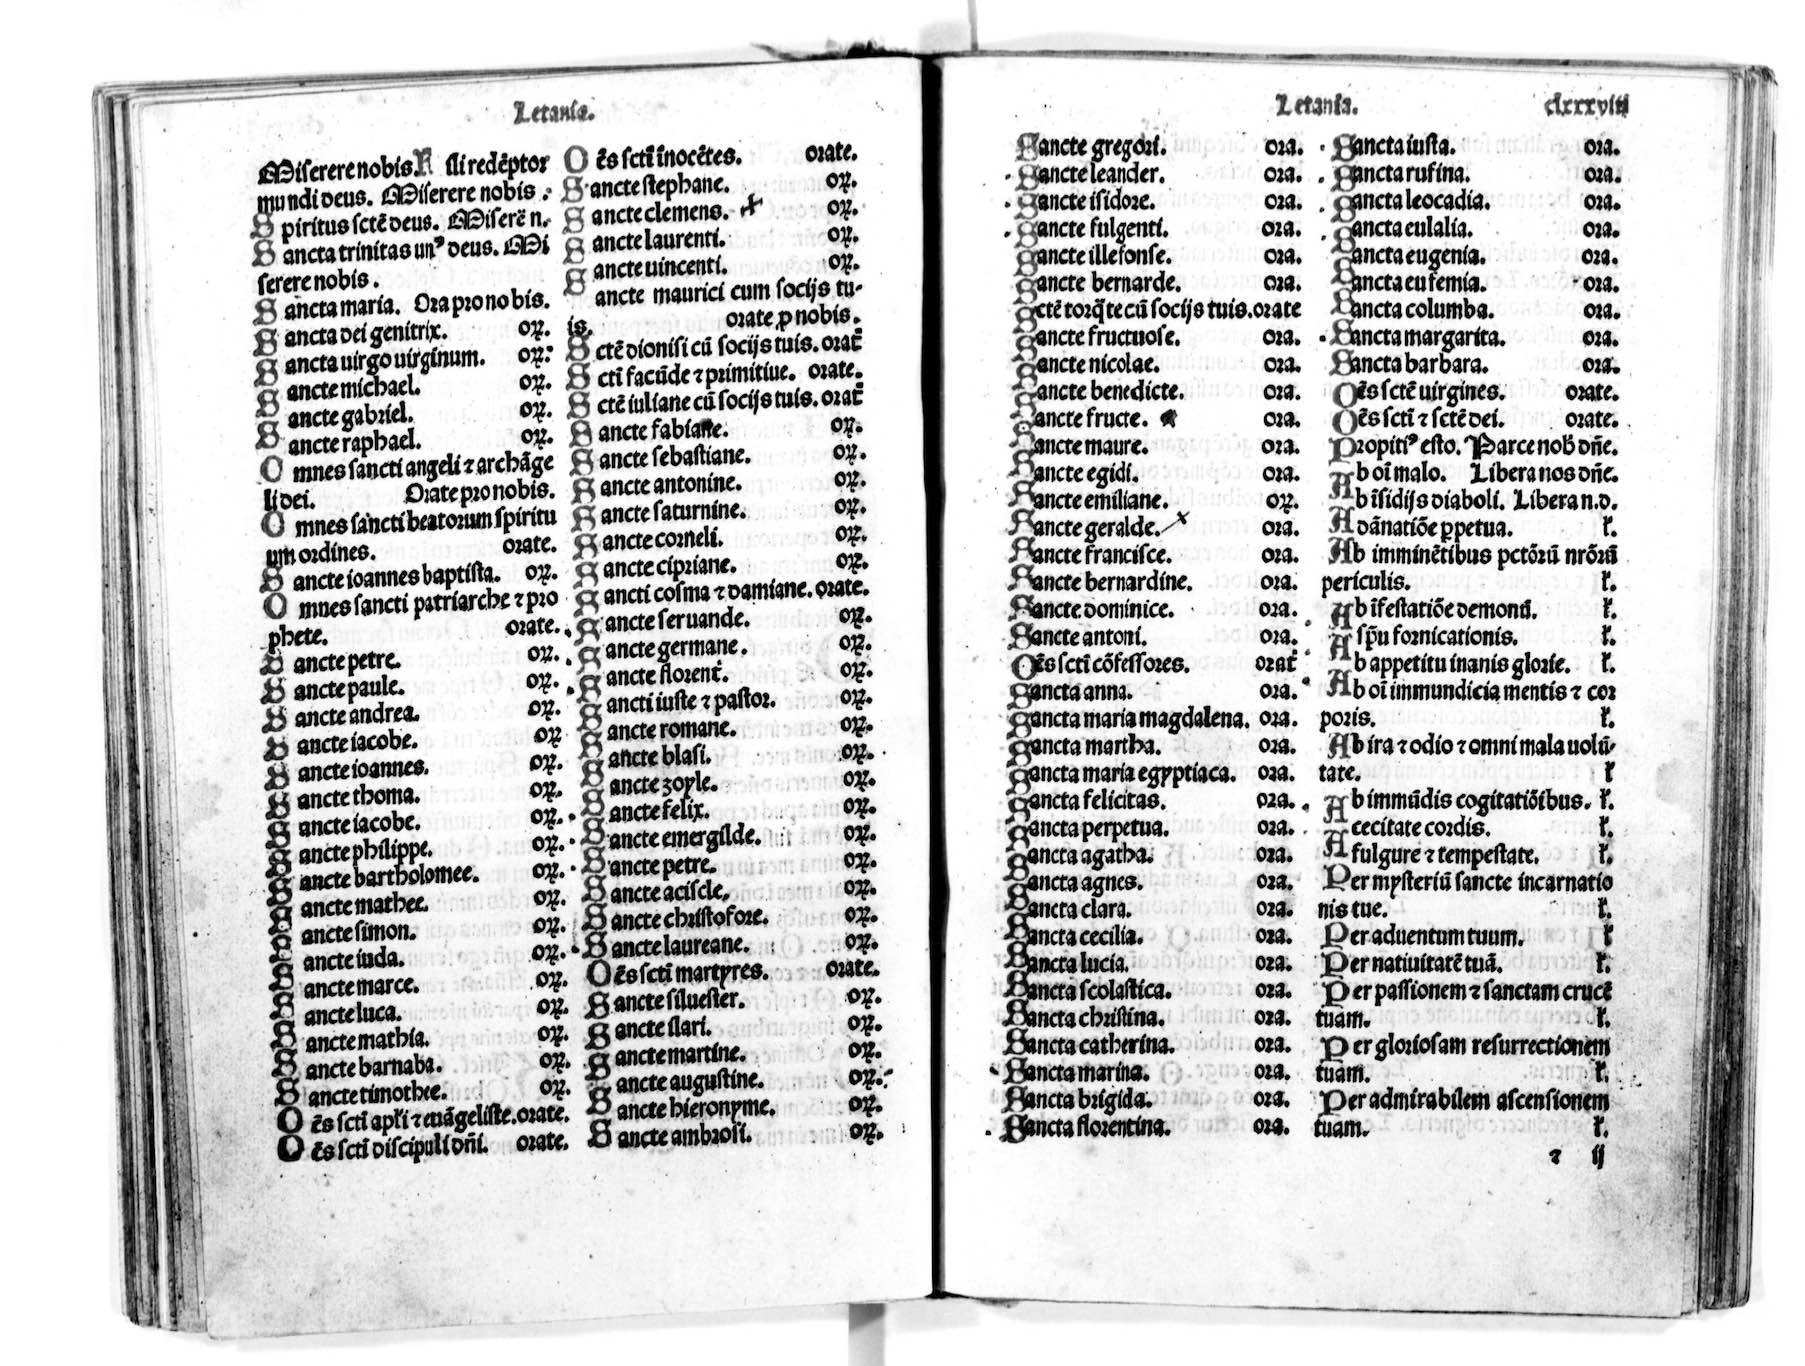 Letania.
Miserere nobis. Fili redẽptor
mundi deus. Miserere nobis.
Spiritus sctẽ deus. Miserẽ n.
Sancta trinitas unꝰ deus. Mi
serere nobis.
Sancta maria. Ora pro nobis.
Sancta dei genitrix. oꝝ.
Sancta uirgo uirginum. oꝝ.
Sancte michael. oꝝ.
Sancte gabriel. oꝝ.
Sancte raphael. oꝝ.
Omnes sancti angeli ⁊ archãge
li dei. Orate pro nobis.
Omnes sancti beatorum spiritu
um ordines. orate.
Sancte ioannes baptista. oꝝ.
Omnes sancti patriarche ⁊ pro
phete. orate.
Sancte petre. oꝝ.
Sancte paule. oꝝ.
Sancte andrea. oꝝ.
Sancte iacobe. oꝝ
Sancte ioannes. oꝝ.
Sancte thoma. oꝝ.
Sancte iacobe. oꝝ.
Sancte philippe. oꝝ.
Sancte bartholomee. oꝝ.
Sancte mathee. oꝝ.
Sancte simon. oꝝ.
Sancte iuda. oꝝ.
Sancte marce. oꝝ.
Sancte luca. oꝝ.
Sancte mathia. oꝝ.
Sancte barnaba. oꝝ.
Sancte timothee. oꝝ.
Oẽs sctĩ apľi ⁊ euãgeliste. orate.
Oẽs sctĩ discipuli dñi. orate.
Oẽs sctĩ ĩnocẽtes. orate.
Sancte stephane. oꝝ.
Sancte clemens. oꝝ.
Sancte laurenti. oꝝ.
Sancte uincenti. oꝝ.
Sancte maurici cum socijs tu-
is. orate ꝓ nobis.
Sctẽ dionisi cũ socijs tuis. orat̃
Sctĩ facũde ⁊ primitiue. orate.
Sctẽ iuliane cũ socijs tuis. orat̃
Sancte fabiane. oꝝ.
Sancte sebastiane. oꝝ.
Sancte antonine. oꝝ.
Sancte saturnine. oꝝ.
Sancte corneli. oꝝ.
Sancte cipriane. oꝝ.
Sancti cosma ⁊ damiane. orate.
Sancte seruande. oꝝ.
Sancte germane. oꝝ.
Sancte florent̃. oꝝ.
Sancti iuste ⁊ pastor. oꝝ.
Sancte romane. oꝝ.
Sancte blasi. oꝝ.
Sancte zoyle. oꝝ.
Sancte felix. oꝝ.
Sancte emergilde. oꝝ.
Sancte petre. oꝝ.
Sancte aciscle. oꝝ.
Sancte christofore. oꝝ.
Sancte laureane. oꝝ.
Oẽs sctĩ martyres. orate.
Sancte siluester. oꝝ.
Sancte ilari. oꝝ.
Sancte martine. oꝝ.
Sancte augustine. oꝝ.
Sancte hieronyme. oꝝ.
Sancte ambrosi. oꝝ.
Letania. clxxxviij
Sancte gregori. ora.
Sancte leander. ora.
Sancte isidore. ora.
Sancte fulgenti. ora.
Sancte illefonse. ora.
Sancte bernarde. ora.
Sctẽ torq̃te cũ socijs tuis. orate
Sancte fructuose. ora.
Sancte nicolae. ora.
Sancte benedicte. ora.
Sancte fructe. ora.
Sancte maure. ora.
Sancte egidi. ora.
Sancte emiliane. oꝝ.
Sancte geralde. ora.
Sancte francisce. ora.
Sancte bernardine. ora.
Sancte dominice. ora.
Sancte antoni. ora.
Oẽs sctĩ cõfessores. orat̃
Sancta anna. ora.
Sancta maria magdalena. ora.
Sancta martha. ora.
Sancta maria egyptiaca. ora.
Sancta felicitas. ora.
Sancta perpetua. ora.
Sancta agatha. ora.
Sancta agnes. ora.
Sancta clara. ora.
Sancta cecilia. ora.
Sancta lucia. ora.
Sancta scolastica. ora.
Sancta christina. ora.
Sancta catherina. ora.
Sancta marina. ora.
Sancta brigida. ora.
Sancta florentina. ora.
Sancta iusta. ora.
Sancta rufina. ora.
Sancta leocadia. ora.
Sancta eulalia. ora.
Sancta eugenia. ora.
Sancta eufemia. ora.
Sancta columba. ora.
Sancta margarita. ora.
Sancta barbara. ora.
Oẽs sctẽ uirgines. orate.
Oẽs sctĩ ⁊ sctẽ dei. orate.
Propitiꝰ esto. Parce nob̃ dñe.
Ab oĩ malo. Libera nos dñe.
Ab ĩsidijs diaboli. Libera n.d.
A dãnatiõe ꝑpetua. ľ.
Ab imminẽtibus pctõrũ nrõrũ
periculis. ľ.
Ab ĩfestatiõe demonũ. ľ.
A sp̃u fornicationis. ľ.
Ab appetitu inanis glorie. ľ.
Ab oĩ immundicia mentis ⁊ cor
poris. ľ.
Ab ira ⁊ odio ⁊ omni mala uolũ-
tate. ľ
Ab immũdis cogitatiõibus. ľ.
A cecitate cordis. ľ.
A fulgure ⁊ tempestate. ľ.
Per mysteriũ sancte incarnatio
nis tue. ľ.
Per aduentum tuum. ľ
Per natiuitatẽ tuã. ľ.
Per passionem ⁊ sanctam crucẽ
tuam. ľ.
Per gloriosam resurrectionem
tuam. ľ.
Per admirabilem ascensionem
tuam. ľ.
⁊ ij